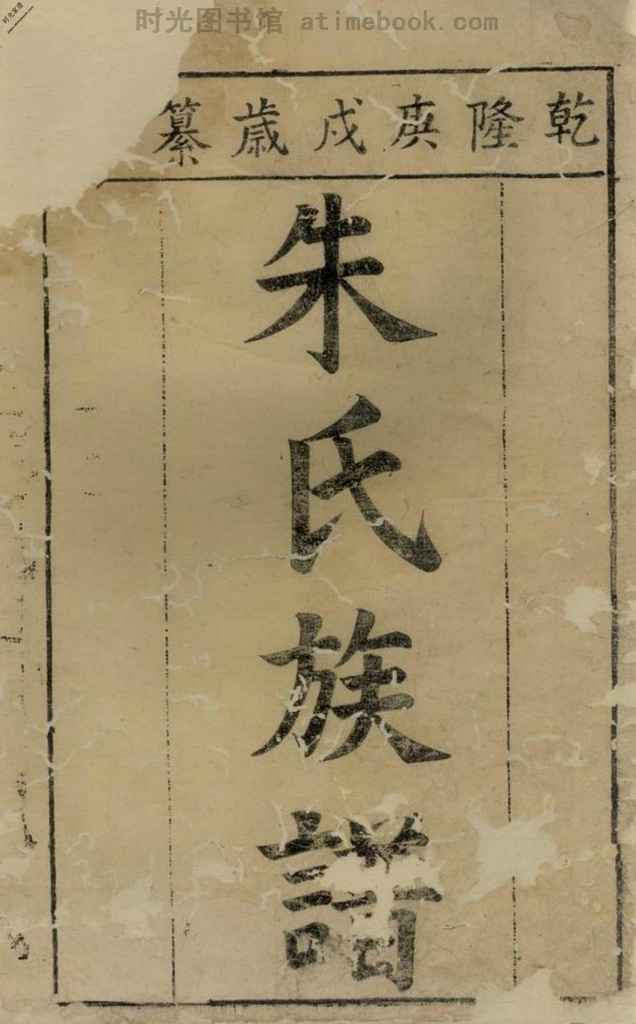 时光图书馆 atimebook.com
乾隆庚戌歲纂
朱氏族譜